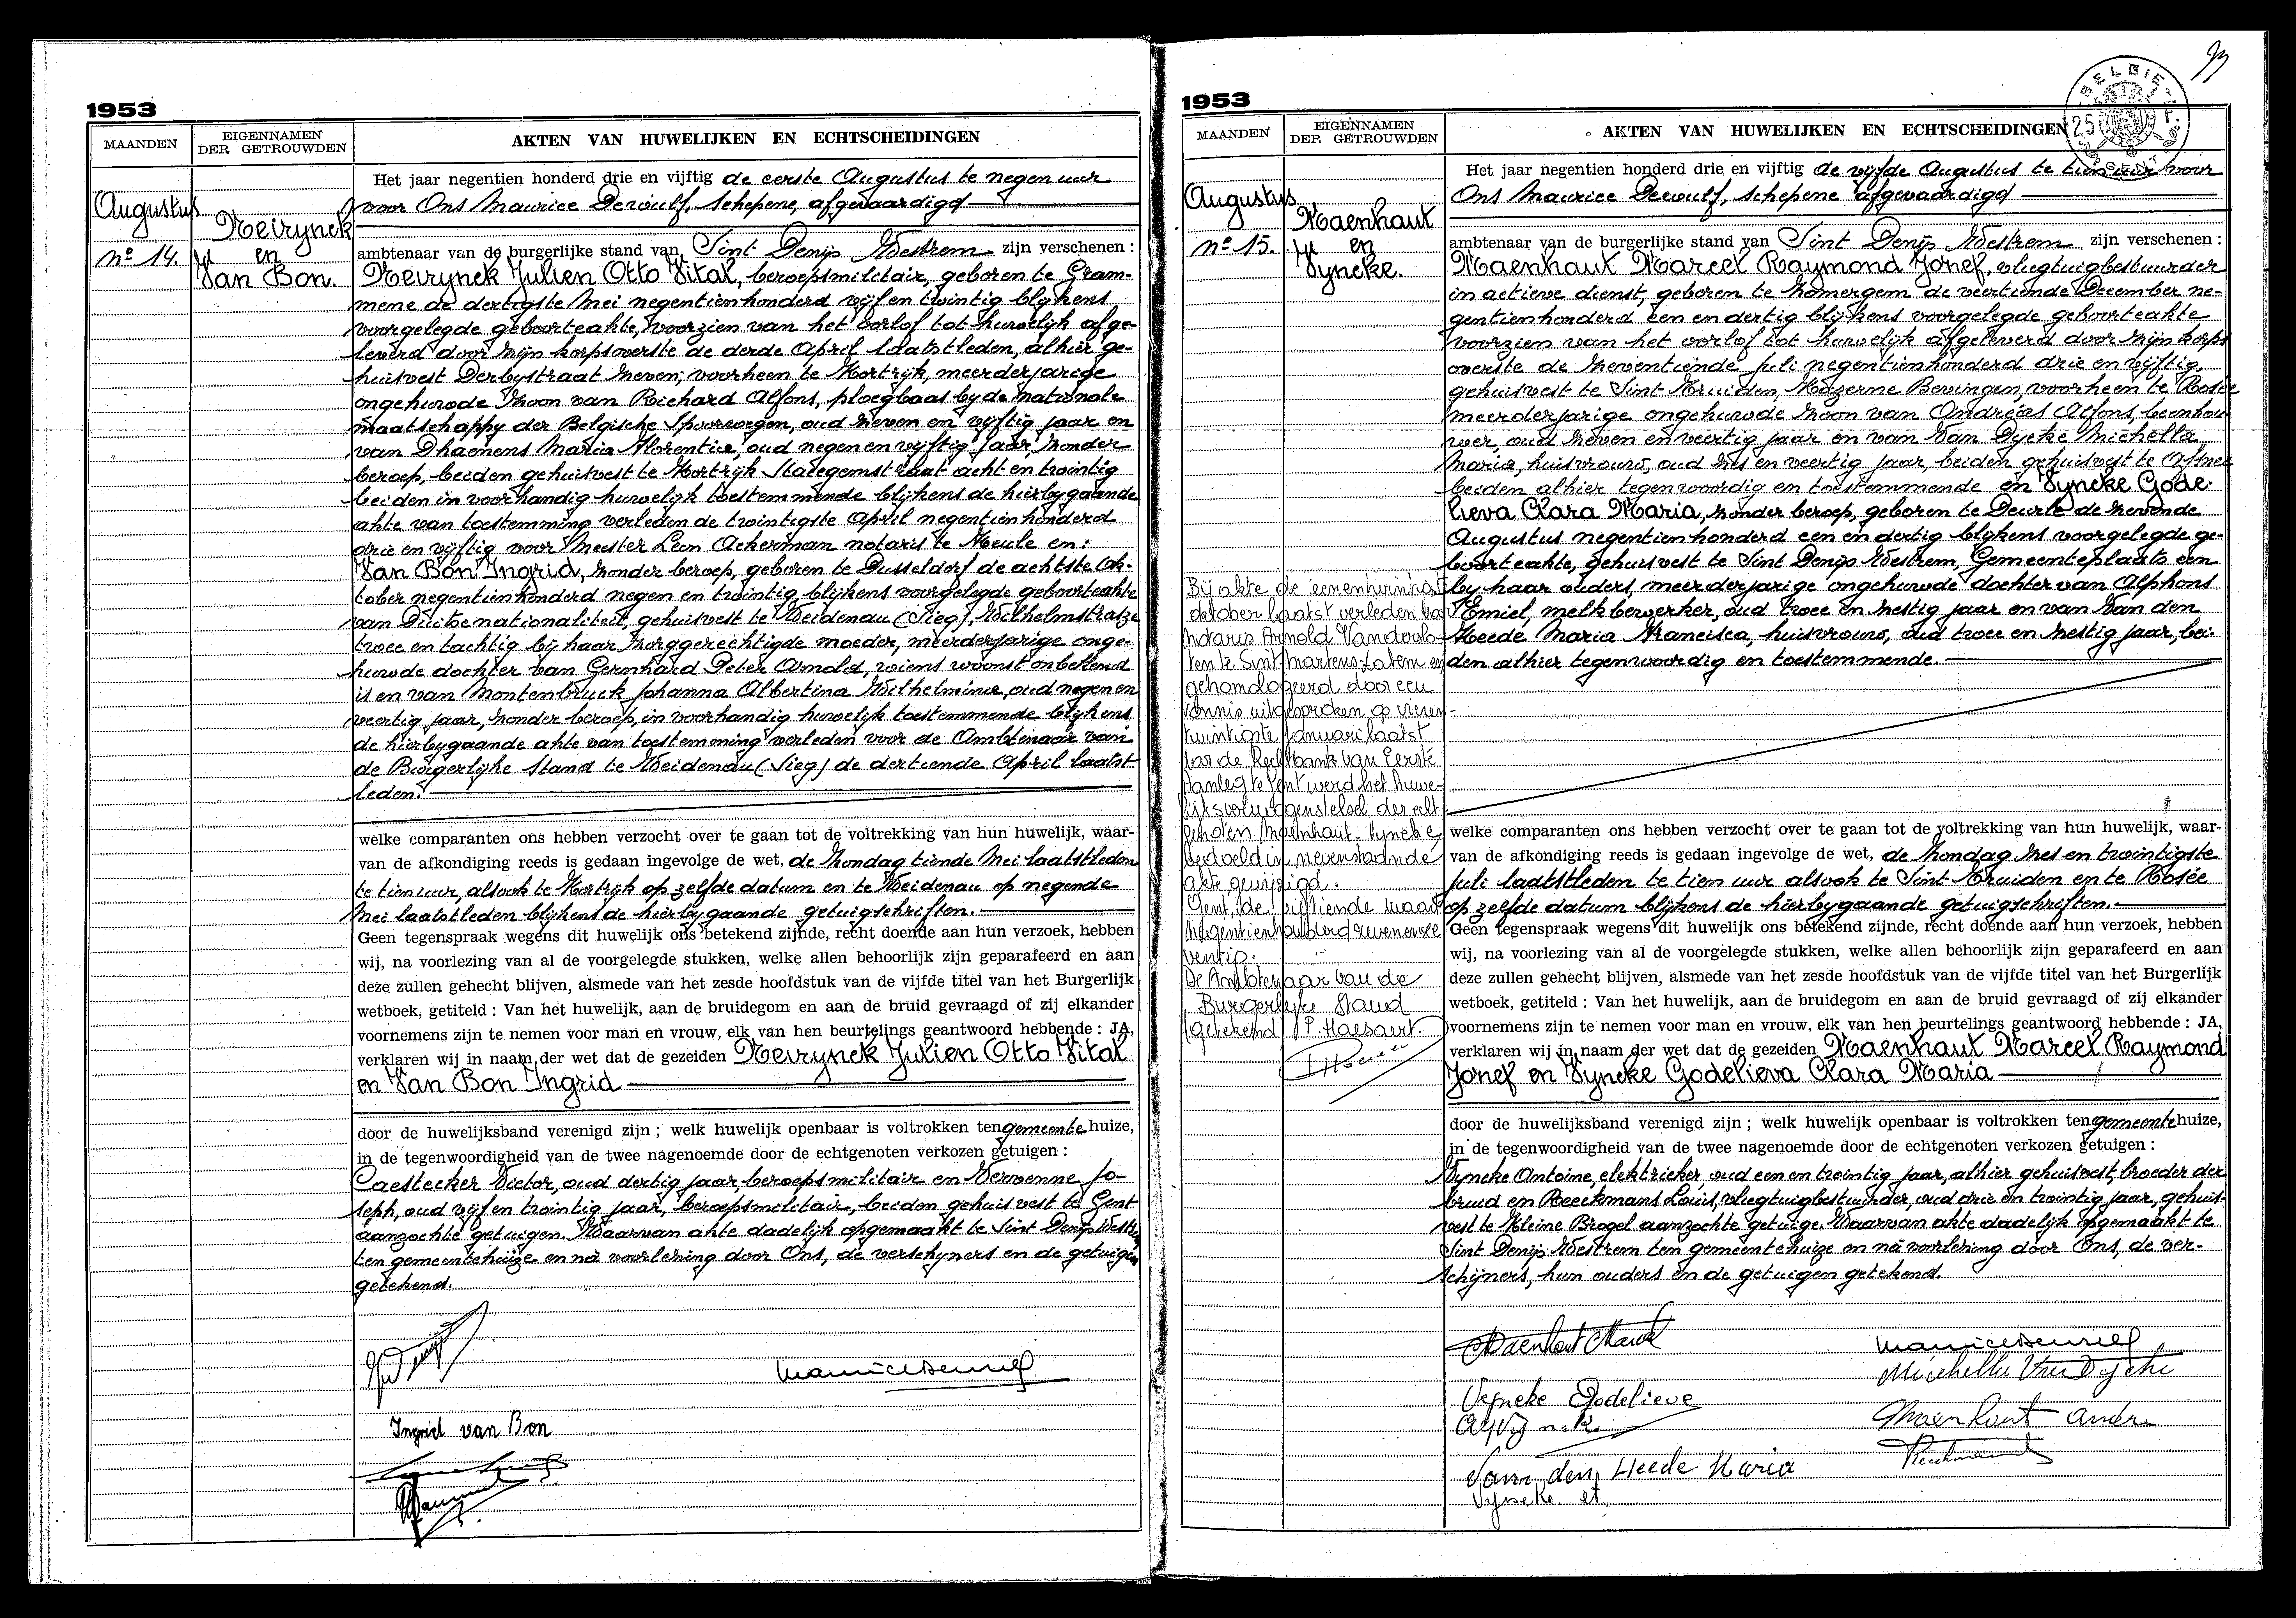 1953
MAANDEN
EIGENNAMEN
DER GETROUWDEN
AKTEN VAN HUWELIJKEN EN ECHTSCHEIDINGEN
Augustus
nº 14.
Neirynck
en
Van Bon.
Het jaar negentien honderd drie en vijftig de eerste Augustus te negen uur
voor Ons Maurice Dewulf, schepene, afgevaardigd
ambtenaar van de burgerlijke stand van Sint Denijs Westrem zijn verschenen :
Neirynck Julien Otto Vital, beroepsmilitair, geboren te Gram-
mene de dertigste Mei negentienhonderd vijf en twintig blijkens
voorgelegde geboorteakte, voorzien van het oorlof tot huwelijk afge-
leverd door zijn korpsoverste de derde April laatstleden, alhier ge-
huisvest Derbystraat zeven, voorheen te Kortrijk, meerderjarige
ongehuwde zoon van Richard Alfons, ploegbaas bij de nationale
maatschappy der Belgische Spoorwegen, oud zeven en vijftig jaar en
van Dhaenens Maria Florentia, oud negen en vijftig jaar, zonder
beroep, beiden gehuisvest te Kortrijk Stalegemstraat acht en twintig
beiden in voorhandig huwelijk toestemmende blijkens de hierbygaande
akte van toestemming verleden de twintigste April negentienhonderd
drie en vijftig voor Meester Leon Ackerman notaris te Heule en:
Van Bon Ingrid, zonder beroep, geboren te Dusseldorf de achtste Ok-
tober negentienhonderd negen en twintig, blijkens voorgelegde geboorteakte
van Duitse nationaliteit, gehuisvest te Weidenau (Sieg), Wilhelmstrasze
twee en tachtig bij haar zorggerechtigde moeder, meerderjarige onge-
huwde dochter van Gernhard Peter Arnold, wiens woonst onbekend
is en van Montenbruck Johanna Albertina Wilhelmina, oud negen en
veertig jaar, zonder beroep, in voorhandig huwelijk toestemmende blijkens
de hierbygaande akte van toestemming verleden voor de Ambtenaar van
de Burgerlijke Stand te Weidenau (Sieg) de dertiende April laatst
leden.
welke comparanten ons hebben verzocht over te gaan tot de voltrekking van hun huwelijk, waar-
van de afkondiging reeds is gedaan ingevolge de wet, de Zondag tiende Mei laatstleden
te tien uur, alsook te Kortrijk op zelfde datum en te Weidenau op negende
Mei laatstleden blijkens de hierbygaande getuigschriften.
Geen tegenspraak wegens dit huwelijk ons betekend zijnde, recht doende aan hun verzoek, hebben
wij, na voorlezing van al de voorgelegde stukken, welke allen behoorlijk zijn geparafeerd en aan
deze zullen gehecht blijven, alsmede van het zesde hoofdstuk van de vijfde titel van het Burgerlijk
wetboek, getiteld : Van het huwelijk, aan de bruidegom en aan de bruid gevraagd of zij elkander
voornemens zijn te nemen voor man en vrouw, elk van hen beurtelings geantwoord hebbende : JA,
verklaren wij in naam der wet dat de gezeiden Neirynck Julien Otto Vital
en Van Bon Ingrid
door de huwelijksband verenigd zijn ; welk huwelijk openbaar is voltrokken ten gemeente huize,
in de tegenwoordigheid van de twee nagenoemde door de echtgenoten verkozen getuigen :
Caestecker Victor, oud dertig jaar, beroepsmilitair en Vervenne Jo-
seph, oud vijf en twintig jaar, beroepsmilitair, beiden gehuisvest te Gent
aanzochte getuigen. Waarvan akte dadelijk opgemaakt te Sint Denijs Westrem
ten gemeentehuize en na voorlezing door Ons, de verschyners en de getuigen
getekend.
Ingrid van Bon
1953
MAANDEN
EIGENNAMEN
DER GETROUWDEN
AKTEN VAN HUWELIJKEN EN ECHTSCHEIDINGEN
BELGIE
25
Augustus
nº 15.
Maenhaut
en
Vyncke.
Het jaar negentien honderd drie en vijftig de vijfde Augustus te tien uur voor
Ons Maurice Dewulf, schepene afgevaardigd
ambtenaar van de burgerlijke stand van Sint Denijs Westrem zijn verschenen :
Maenhaut Marcel Raymond Jozef, vliegtuigbestuurder
in actieve dienst, geboren te Zomergem de veertiende December ne-
gentienhonderd een en dertig blijkens voorgelegde geboorteakte
voorzien van het oorlof tot huwelijk afgeleverd door zijn korps
overste de zeventiende Juli negentienhonderd drie en vijftig,
gehuisvest te Sint Truiden, Kazerne Bevingen, voorheen te Rosée
meerderjarige ongehuwde zoon van Andreas Alfons, beenhou
wer, oud zeven en veertig jaar en van Van Dycke Michella
Maria, huisvrouw, oud zes en veertig jaar, beiden gehuisvest te Afsnee
beiden alhier tegenwoordig en toestemmende en Vyncke Gode-
lieva Clara Maria, zonder beroep, geboren te Deurle de zevende
Augustus negentienhonderd een en dertig blijkens voorgelegde ge-
boorteakte, gehuisvest te Sint Denijs Westrem, Gemeenteplaats een
by haar ouders, meerderjarige ongehuwde dochter van Alphons
Emiel, melkbewerker, oud twee en zestig jaar en van Van den
Heede Maria Francisca, huisvrouw, oud twee en zestig jaar, bei-
den alhier tegenwoordig en toestemmende.
Bij akte de eenentwintig
oktober laatst verleden voor
notaris Arnold Vanderlo-
ten te Sint-Martens-Latem en
gehomologeerd door een
vonnis uitgesproken op vieren-
twintigste januari laatst
door de Rechtbank van Eerste
Aanleg te Gent werd het huwe-
lijksvermogenstelsel der echt
genoten Maenhaut-Vyncke,
bedoeld in nevenstaande
akte gewijzigd.
Gent, de vijftiende maart
negentienhonderd zevenenze
ventig.
De Ambtenaar van de
Burgerlijke Stand
(getekend) P. Haesaert.
welke comparanten ons hebben verzocht over te gaan tot de voltrekking van hun huwelijk, waar-
van de afkondiging reeds is gedaan ingevolge de wet, de Zondag zes en twintigste
Juli laatstleden te tien uur alsook te Sint Truiden en te Rosée
op zelfde datum blijkens de hierbygaande getuigschriften.
Geen tegenspraak wegens dit huwelijk ons betekend zijnde, recht doende aan hun verzoek, hebben
wij, na voorlezing van al de voorgelegde stukken, welke allen behoorlijk zijn geparafeerd en aan
deze zullen gehecht blijven, alsmede van het zesde hoofdstuk van de vijfde titel van het Burgerlijk
wetboek, getiteld : Van het huwelijk, aan de bruidegom en aan de bruid gevraagd of zij elkander
voornemens zijn te nemen voor man en vrouw, elk van hen beurtelings geantwoord hebbende : JA,
verklaren wij in naam der wet dat de gezeiden Maenhaut Marcel Raymond
Jozef en Vyncke Godelieva Clara Maria
door de huwelijksband verenigd zijn ; welk huwelijk openbaar is voltrokken ten gemeente huize,
in de tegenwoordigheid van de twee nagenoemde door de echtgenoten verkozen getuigen :
Vyncke Antoine, elektrieker, oud een en twintig jaar, alhier gehuisvest, broeder der
bruid en Beeckmans Louis, vliegtuigbestuurder, oud drie en twintig jaar, gehuis-
vest te Kleine Brogel aanzochte getuige. Waarvan akte dadelijk opgemaakt te
Sint Denijs Westrem ten gemeentehuize en na voorlezing door Ons, de ver-
schijners, hun ouders en de getuigen getekend.
Maenhout Marcel
Michella Van Dycke
Vyncke Godelieve
Maenhout Andre
Van den Heede Maria
Vyncke